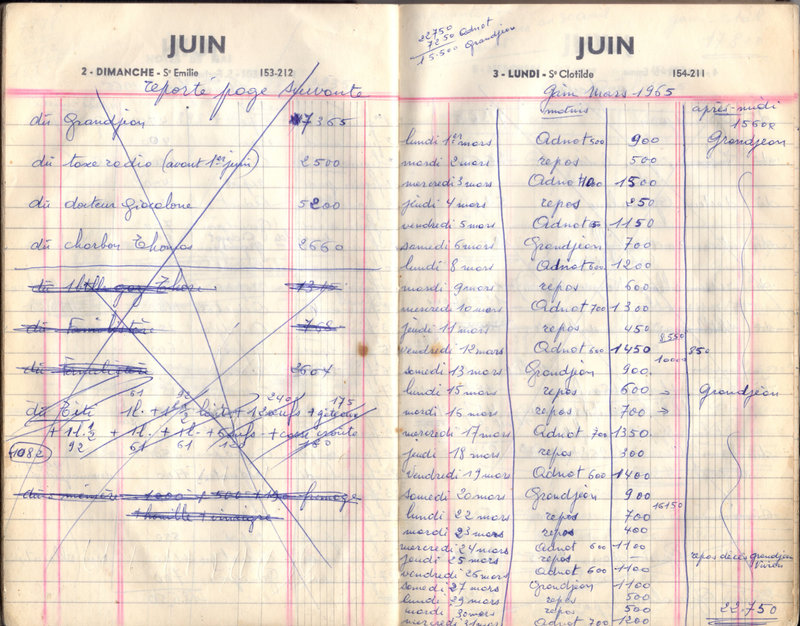 JUIN
2 - DIMANCHE - Sᵉ Emilie 153-212
reporté page suivante
dû Grandjean 7365
dû taxe radio (avant 1er juin) 2500
dû docteur Giacalone 5200
dû charbon Thomas 2660
dû
dû Familistère 768
dû Familistère 2604
dû Tité 1l. + 1l ½ lait + 12 oeufs + gâteaux
61 92 240 175
+ 1l ½ + 1l. + 1l. + 6 oeufs + casse croute
1082 92 61 61 120 180
dû mémère 1000 + 500 + 150 fromage
+ + vinaigre
22750
7250 Adnot
15.500 Grandjean
JUIN
3 - LUNDI - Sᵉ Clotilde 154-211
Gain Mars 1965
matins après-midi
15600
lundi 1er mars Adnot 500 900 Grandjean
mardi 2 mars repos 500
mercredi 3 mars Adnot 1500
jeudi 4 mars repos 250
vendredi 5 mars Adnot 1150
samedi 6 mars Grandjean 700
lundi 8 mars Adnot 600 1200
mardi 9 mars repos 600
mercredi 10 mars Adnot 700 1300
jeudi 11 mars repos 450
8550
vendredi 12 mars Adnot 600 1450 850
1000
samedi 13 mars Grandjean 900
lundi 15 mars repos 600 → Grandjean
mardi 16 mars repos 700 →
mercredi 17 mars Adnot 700 1350
jeudi 18 mars repos 300
vendredi 19 mars Adnot 600 1400
samedi 20 mars Grandjean 900
16150
lundi 22 mars repos 700
mardi 23 mars repos 400
mercredi 24 mars Adnot 600 1100
jeudi 25 mars repos — repos décès Grandjean
Vivien
vendredi 26 mars Adnot 600 1100
samedi 27 mars Grandjean 1100
lundi 29 mars repos 500
mardi 30 mars repos 500 22.750
mercredi 31 mars Adnot 700 1200